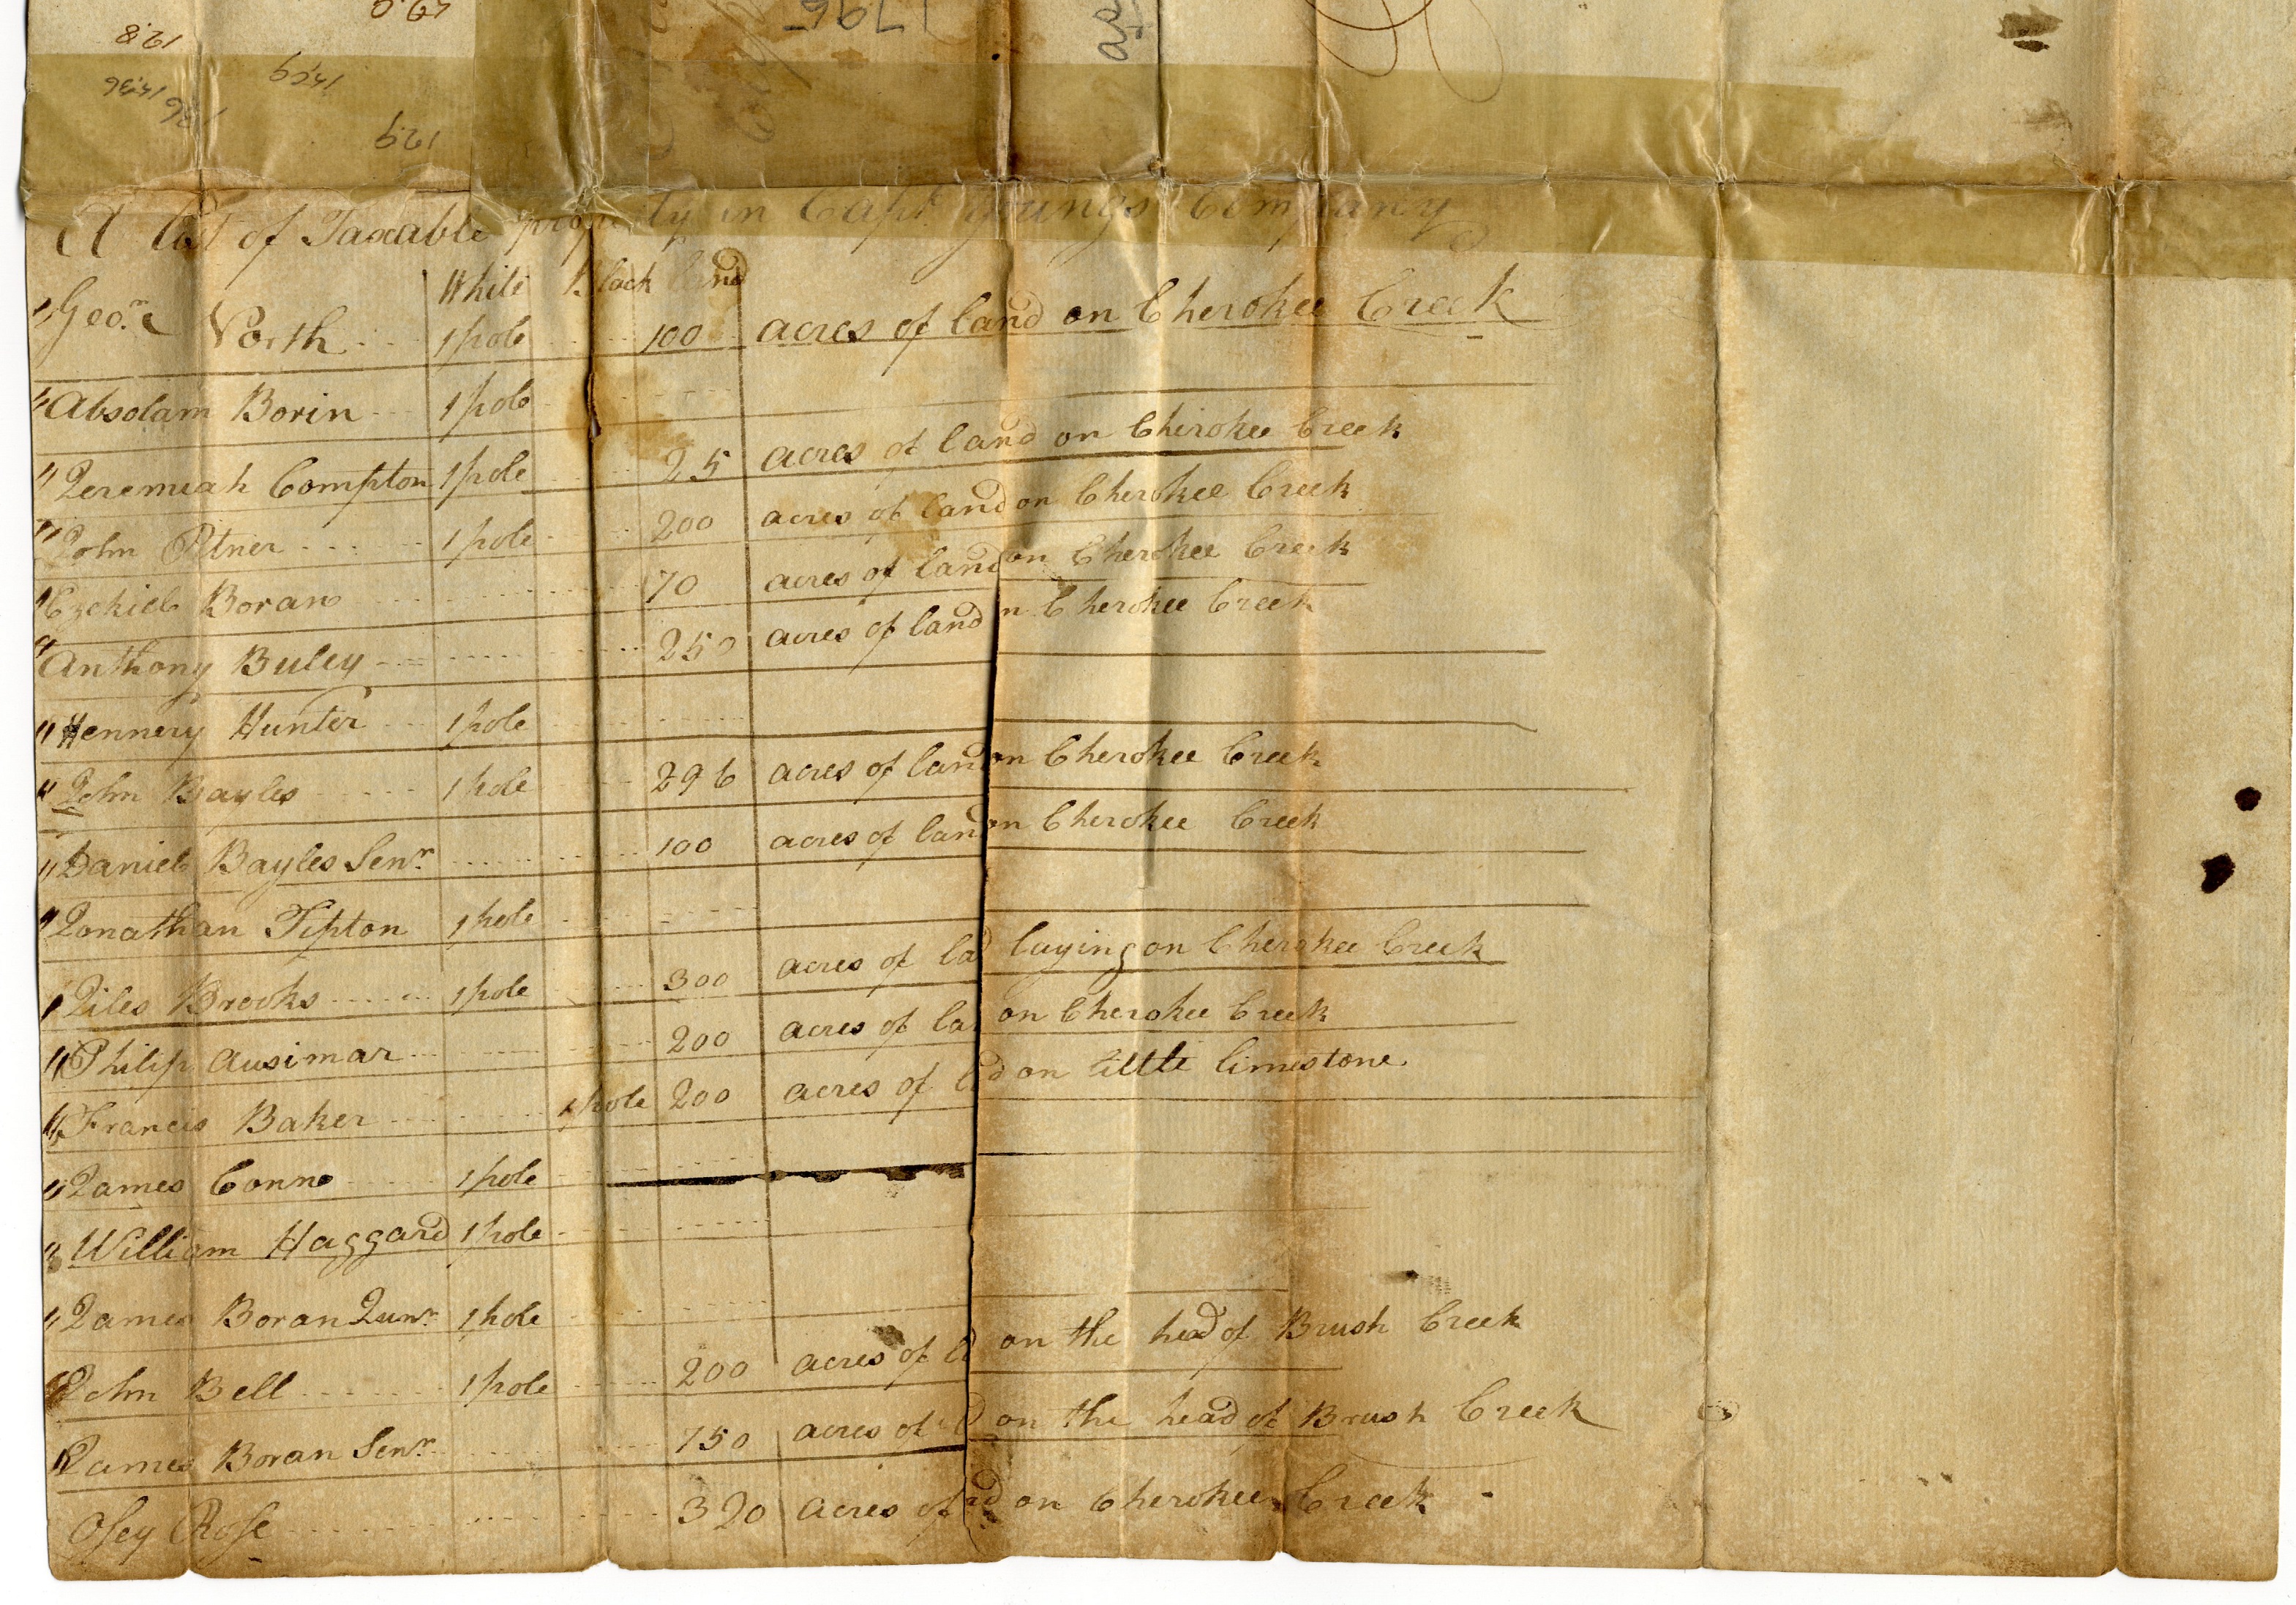 1796
A list of Taxable property in Capt Youngs Company
White Black land
Geo.r North 1 pole 100 acres of land on Cherokee Creek
Absolam Borin 1 pole
Jeremiah Compton 1 pole 25 acres of land on Cherokee Creek
John Pitner 1 pole 200 acres of land on Cherokee Creek
Ezekiel Boran 70 acres of land on Cherokee Creek
Anthony Buley 250 acres of land n Cherokee Creek
Hennery Hunter 1 pole
John Bayles 1 pole 296 acres of lan on Cherokee Creek
Daniel Bayles Senr 100 acres of lan on Cherokee Creek
Jonathan Tipton 1 pole
Jiles Brooks 1 pole 300 acres of la laying on Cherokee Creek
Philip Ausimar 200 acres of la on Cherokee Creek
Francis Baker 1 pole 200 acres of l d on little limestone
James Conn 1 pole
William Haggard 1 pole
James Boran Junr 1 pole
John Bell 1 pole 200 acres of l on the head of Brush Creek
James Boran Senr 150 acres of d on the head of Brush Creek
Osey Rose 320 acres of nd on Cherokee Creek